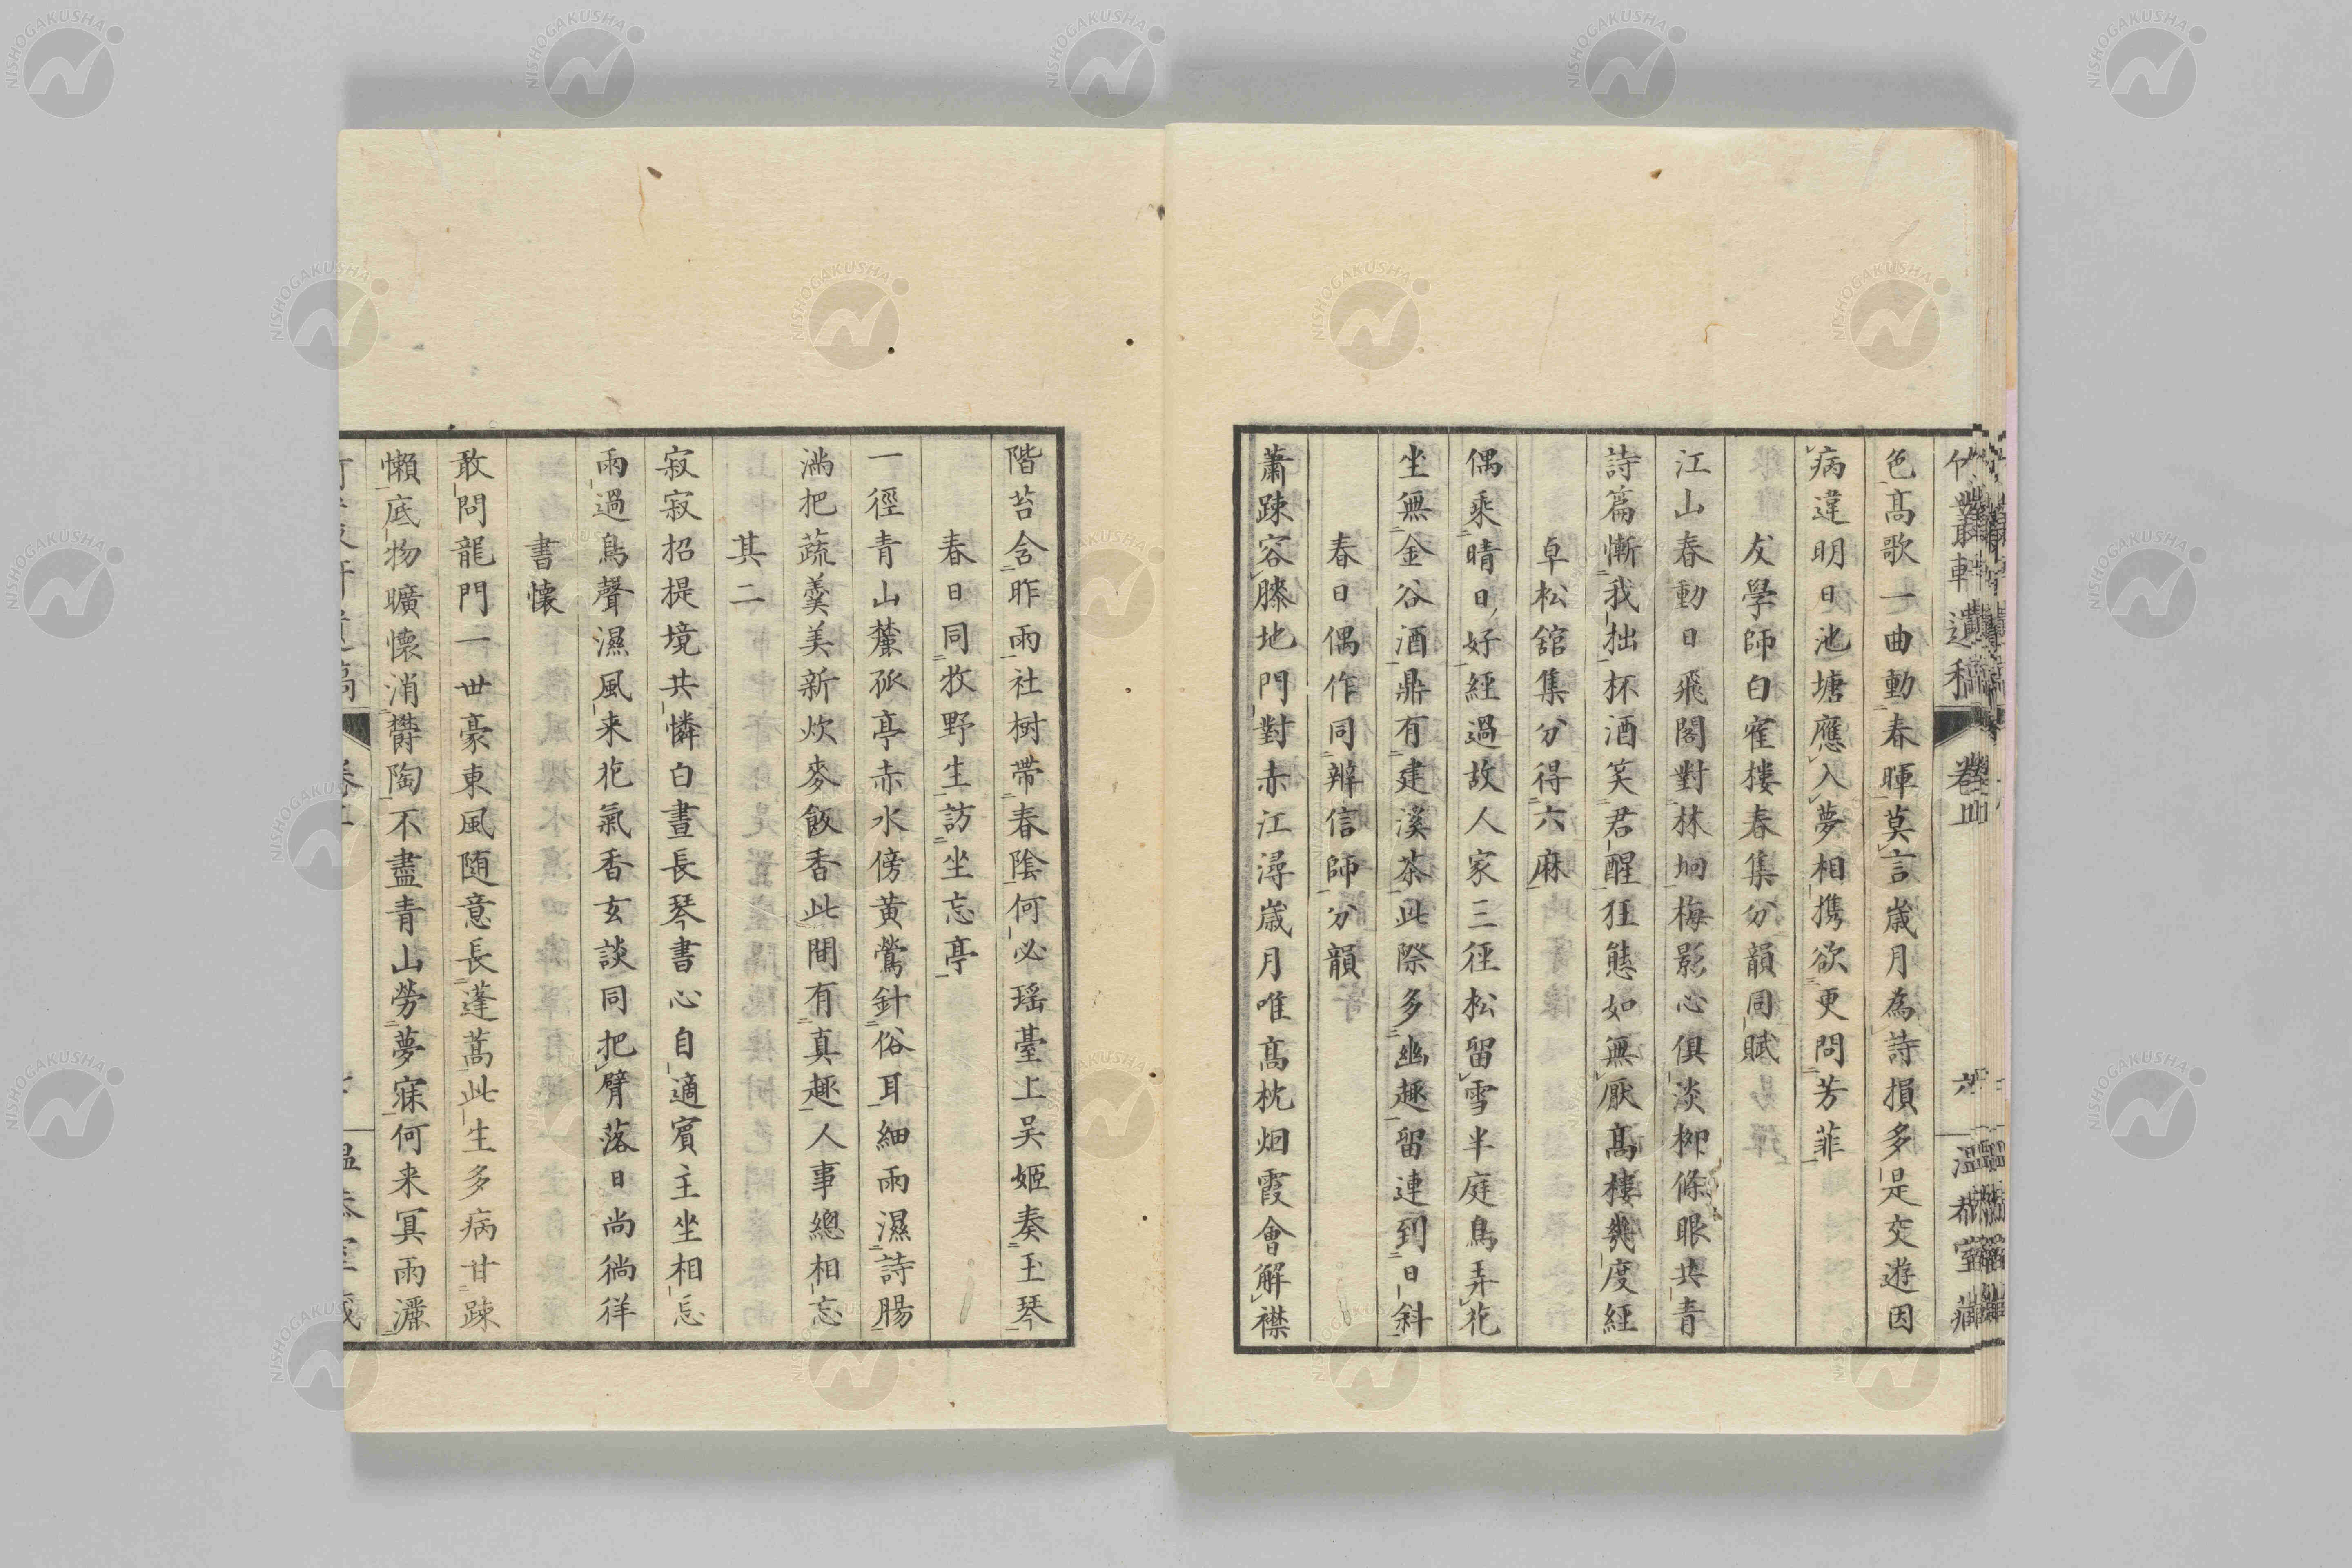 色高歌一曲動春暉莫言歳月為詩損多是交遊因
病違明日池塘應入夢相携欲更問芳菲
友學師白雀樓春集分韻同賦
江山春動日飛閣對林坰梅影心俱淡柳條眼共青
詩篇慚我拙杯酒笑君醒狂態如無厭高樓幾度經
卓松舘集分得六麻
偶乘晴日好經過故人家三徑松留雪半庭鳥弄花
坐無金谷酒鼎有建溪茶此際多幽趣留連到日斜
春日偶作同辨信師分韻
蕭踈容膝地門對赤江潯歳月唯高枕烟霞會解襟
階苔含昨雨社樹帶春陰何必瑶臺上吴姬奏玉琴
春日同牧野生訪坐忘亭
一徑青山麓孤亭赤水傍黄鶯針俗耳細雨濕詩腸
満把蔬羹美新炊麥飯香此間有真趣人事總相忘
其二
寂寂招提境共憐白晝長琴書心自適賓主坐相忘
雨過鳥聲濕風来花氣香玄談同把臂落日尚徜徉
書懐
敢問龍門一世豪東風随意長蓬蒿此生多病甘踈
懶底物曠懐消欝陶不盡青山勞夢寐何来冥雨灑